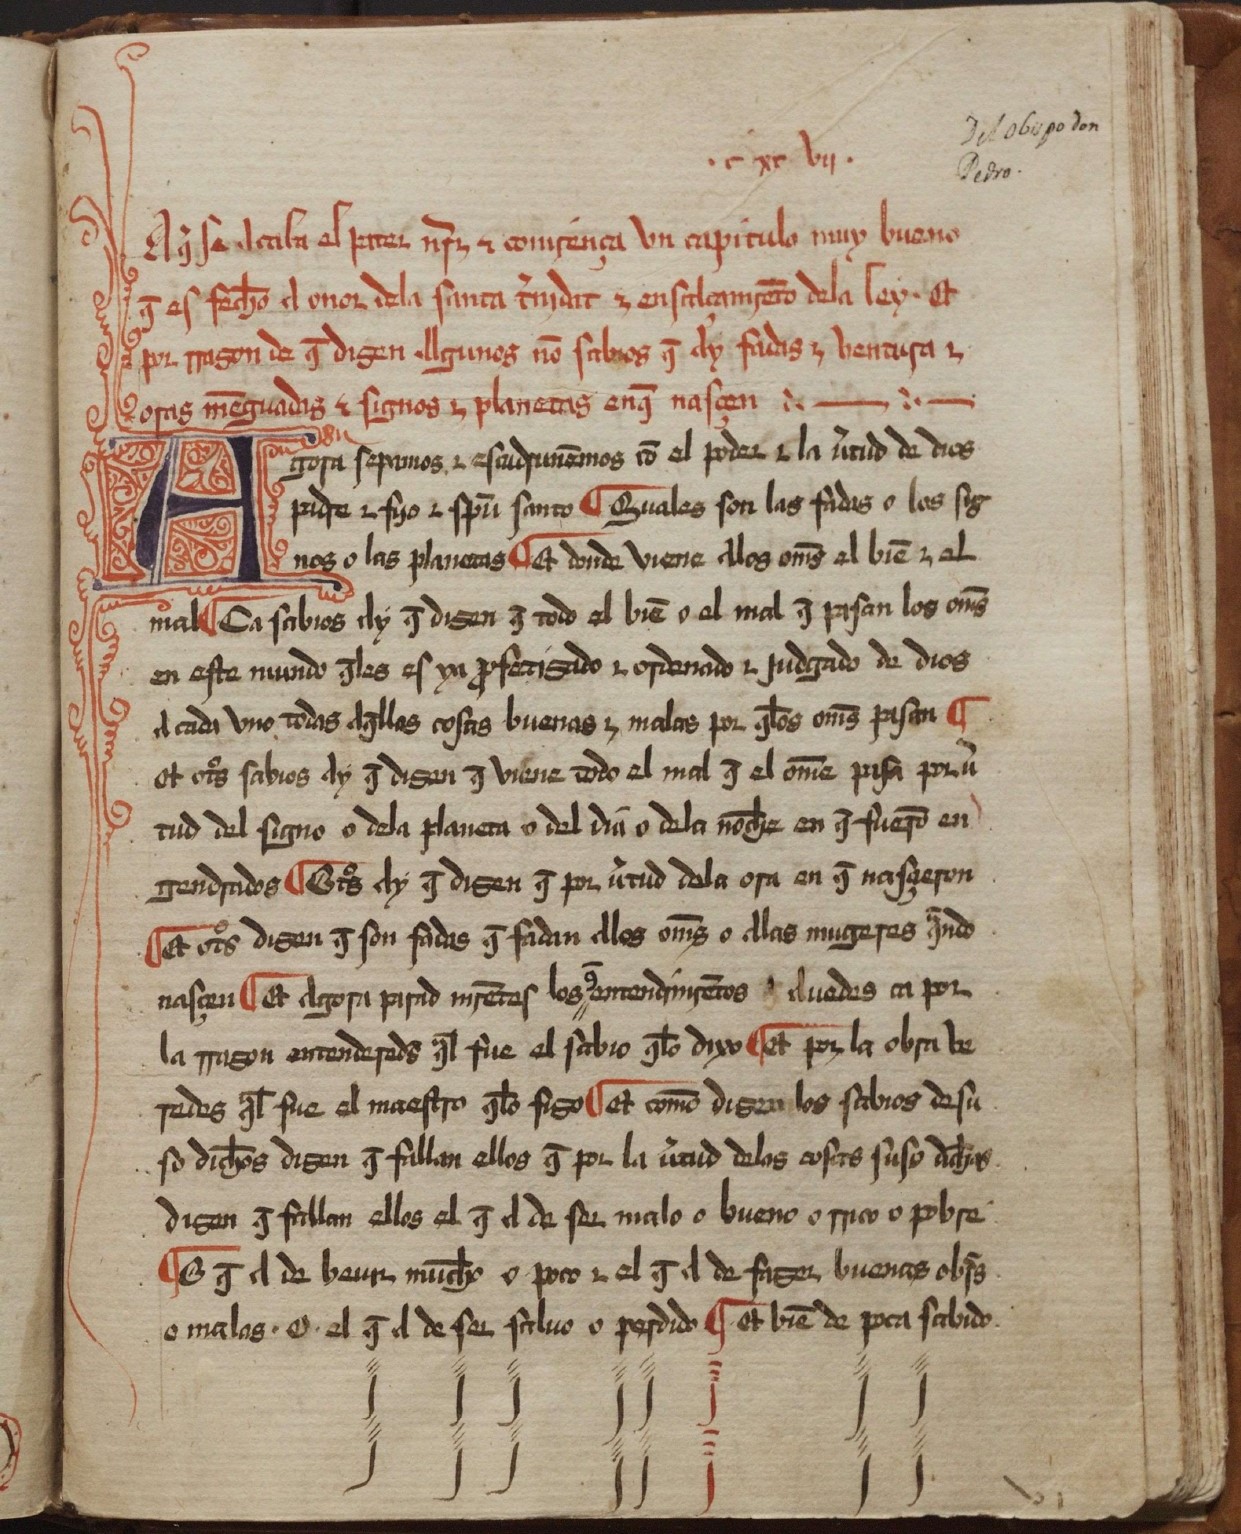 · c xc vii ·
Del obispo don
Pedro.
Aq̃ se acaba el pater nr̃ ⁊ comiença vn capitulo muy bueno
q̃ es fecho a onor dela santa t̃nidat ⁊ ensalçamiẽto dela ley · Et
por rrazon de q̃ dizen algunos nõ sabios q̃ ay fadas ⁊ ventura ⁊
oras mẽguadas ⁊ signos ⁊ planetas en q̃ nasçen
Agora sepamos ⁊ escudruñemos cõ el poder ⁊ la ṽtud de dios
padre ⁊ fijo ⁊ spũ santo ¶ Quales son las fadas o los sig
nos o las planetas ¶ Et donde viene alos om̃s el biẽ ⁊ el
mal ¶ Ca sabios ay q̃ dizen q̃ todo el biẽ o el mal q̃ pasan los om̃s
en este mundo q̃les es ya profetizado ⁊ ordenado ⁊ judgado de dios
a cada vno todas aq̃llas cosas buenas ⁊ malas por q̃ los om̃s pasan ¶
et otr̃s sabios ay q̃ dizen q̃ viene todo el mal q̃ el om̃e pasa por ṽ
tud del signo o dela planeta o del dia o dela noche en q̃ fuerõ en
gendrados ¶ Otr̃s ay q̃ dizen q̃ por ṽtud dela ora en q̃ nasçieron
¶ Et otr̃s dizen q̃ son fadas q̃ fadan alos om̃s o alas mugeres q̃ndo
nasçen ¶ Et agora parad miẽtes los entendimiẽtos avedes ca por
la rrazon entenderedes q̃l fue el sabio q̃ lo dixo ¶ et por la obra ve
redes q̃l fue el maestro q̃ lo fizo ¶ et como dizen los sabios desu
so dichos dizen q̃ fallan ellos q̃ por la ṽtud delas cosas suso dichas
dizen q̃ fallan ellos el q̃ a de ser malo o bueno o rrico o pobre
¶ O q̃ a de beuir mucho o poco ⁊ el q̃ a de fazer buenas obr̃s
o malas · O · el q̃ a de ser saluo o perdido ¶ et biẽ de poca sabido